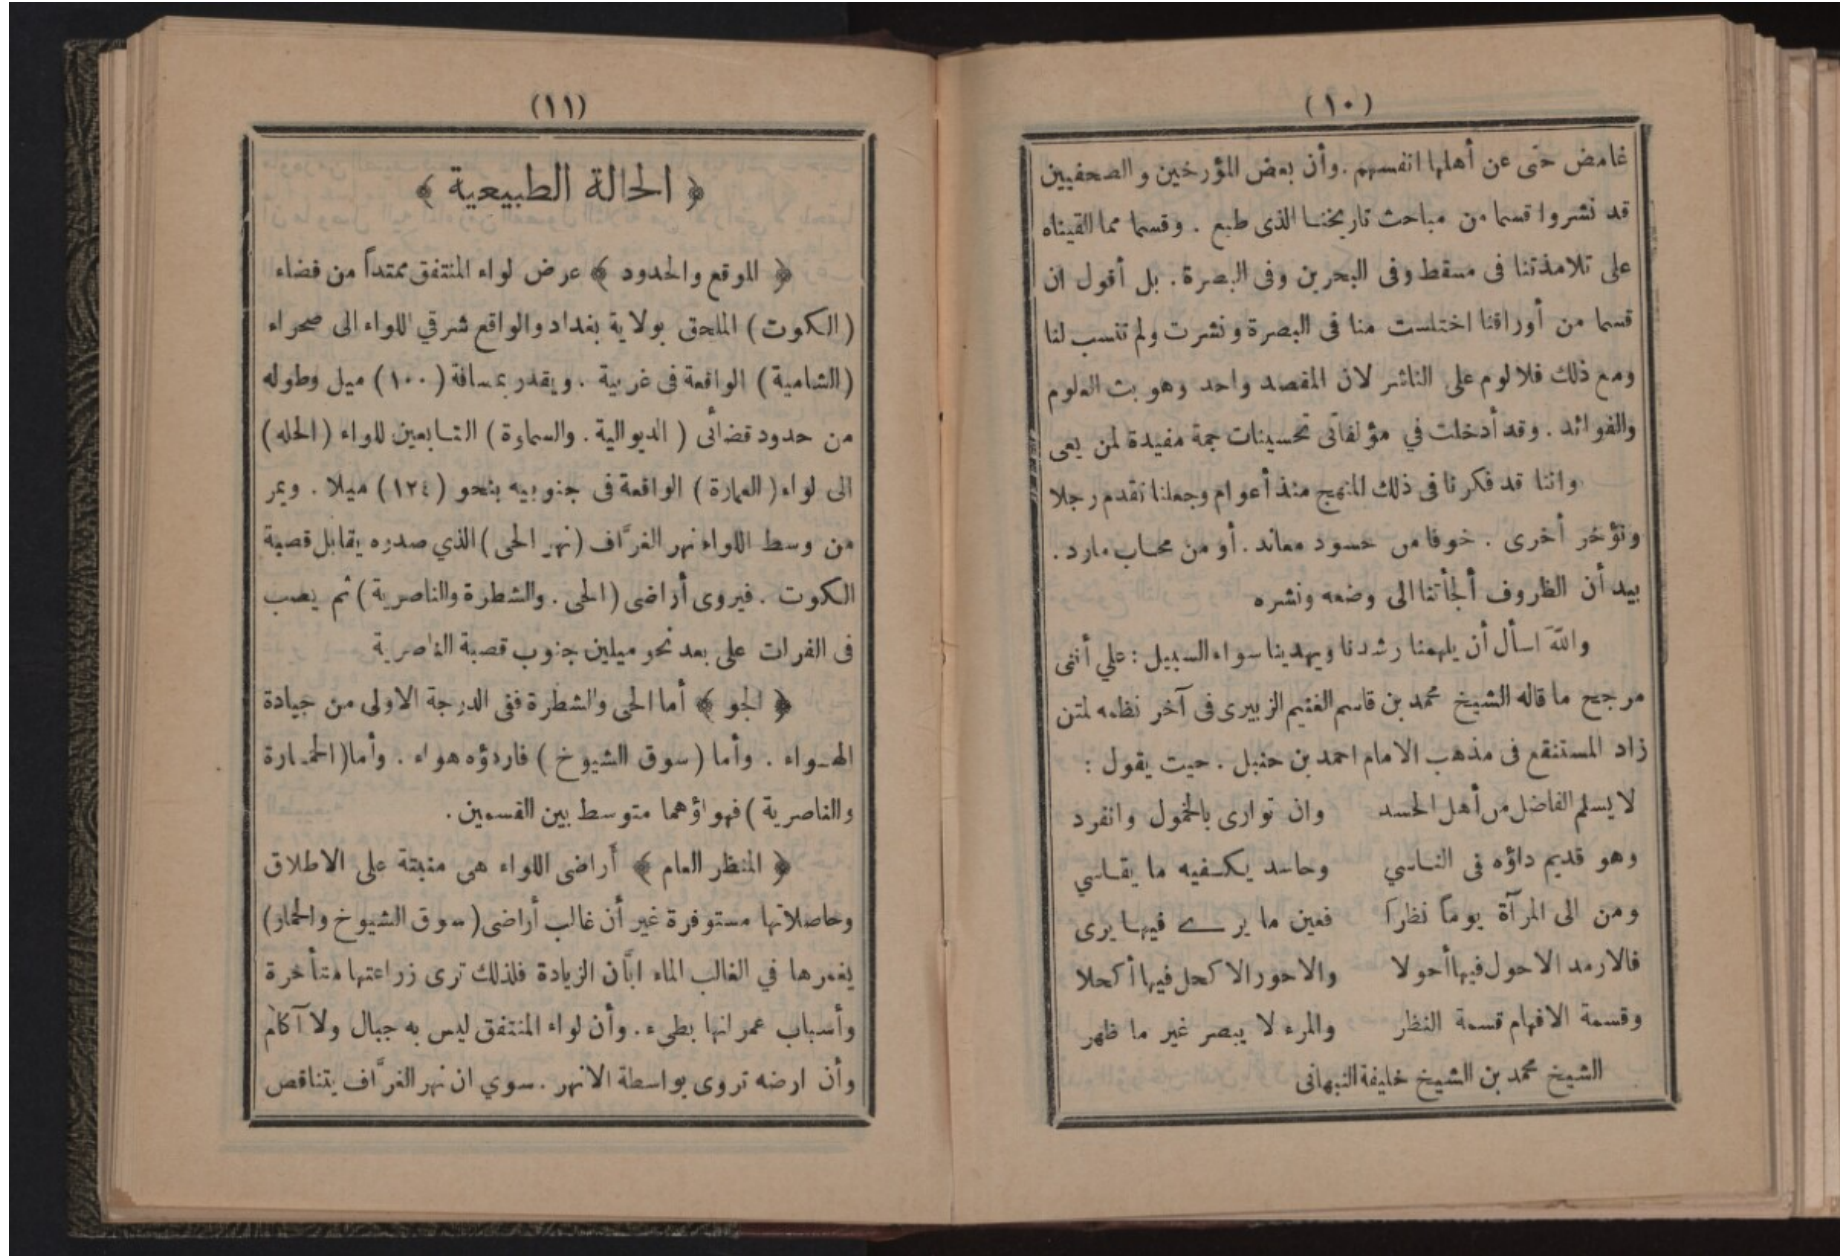 (١٠)
غامض حتى عن أهلها انفسهم . وأن بعض المؤرخين والصحفيين
قد نشروا قسما من مباحث تاريخنا الذى طبع . وقسما مما القيناه
على تلامذتنا فى مسقط وفى البحرين وفى البصرة . بل أقول ان
قسما من أوراقنا اختلست منا فى البصرة ونشرت ولم تنسب لنا
ومع ذلك فلا لوم على الناشر لان المقصد واحد وهو بث العلوم
والفوائد . وقد أدخلت في مؤلفاتى تحسينات جمة مفيدة لمن يعى
واننا قد فكرنا فى ذلك المنهج منذ أعوام وجعلنا نقدم رجلا
ونؤخر أخرى . خوفا من حسود معاند . أو من محاب مارد .
بيد أن الظروف ألجأتنا الى وضعه ونشره
واللّهَ اسأل أن يلهمنا رشدنا ويهدينا سواء السبيل : علي أننى
مرجح ما قاله الشيخ محمد بن قاسم الغنيم الزبيرى فى آخر نظمه لمتن
زاد المستنقع فى مذهب الامام احمد بن حنبل . حيت يقول :
لا يسلم الفاضل من أهل الحسد وان توارى بالخمول وانفرد
وهو قديم داؤه فى الناسي وحاسد يكفيه ما يقاسي
ومن الى المرآة يوماً نظرا فعين ما يرے فيها يرى
فالارمد الاحول فيها أحولا والاحور الاكحل فيها أكحلا
وقسمة الافهام قسمة النظر والمرء لا يبصر غير ما ظهر
الشيخ محمد بن الشيخ خليفة النبهانى
(١١)
﴿ الحالة الطبيعية ﴾
﴿ الموقع والحدود ﴾ عرض لواء المنتفق ممتداً من قضاء
(الكوت) الملحق بولاية بغداد والواقع شرقي اللواء الى صحراء
(الشامية) الواقعة فى غربية . ويقدر بمسافة (١٠٠) ميل وطوله
من حدود قضائى (الديوالية . والسماوة) التابعين للواء (الحله)
الى لواء (العمارة) الواقعة فى جنوبيه بنحو (١٢٤) ميلا . ويمر
من وسط اللواء نهر الغرَّاف (نهر الحى) الذي صدره يقابل قصبة
الكوت . فيروى أراضى (الحى . والشطرة والناصرية) ثم يصب
فى الفرات على بعد نحو ميلين جنوب قصبة الناصرية
﴿ الجو ﴾ أما الحى والشطرة ففى الدرجة الاولى من جيادة
الهواء . وأما (سوق الشيوخ) فاردؤه هواء . وأما (الخمارة
والناصرية) فهواؤهما متوسط بين القسمين .
﴿ المنظر العام ﴾ أراضى اللواء هى منبتة على الاطلاق
وحاصلاتها مستوفرة غير أن غالب أراضى (سوق الشيوخ والحمار)
يغمرها في الغالب الماء ابَّان الزيادة فلذلك ترى زراعتها متأخرة
وأسباب عمرانها بطيء . وأن لواء المنتفق ليس به جبال ولا آكام
وأن ارضه تروى بواسطة الانهر . سوي ان نهر الغرَّاف يتناقص